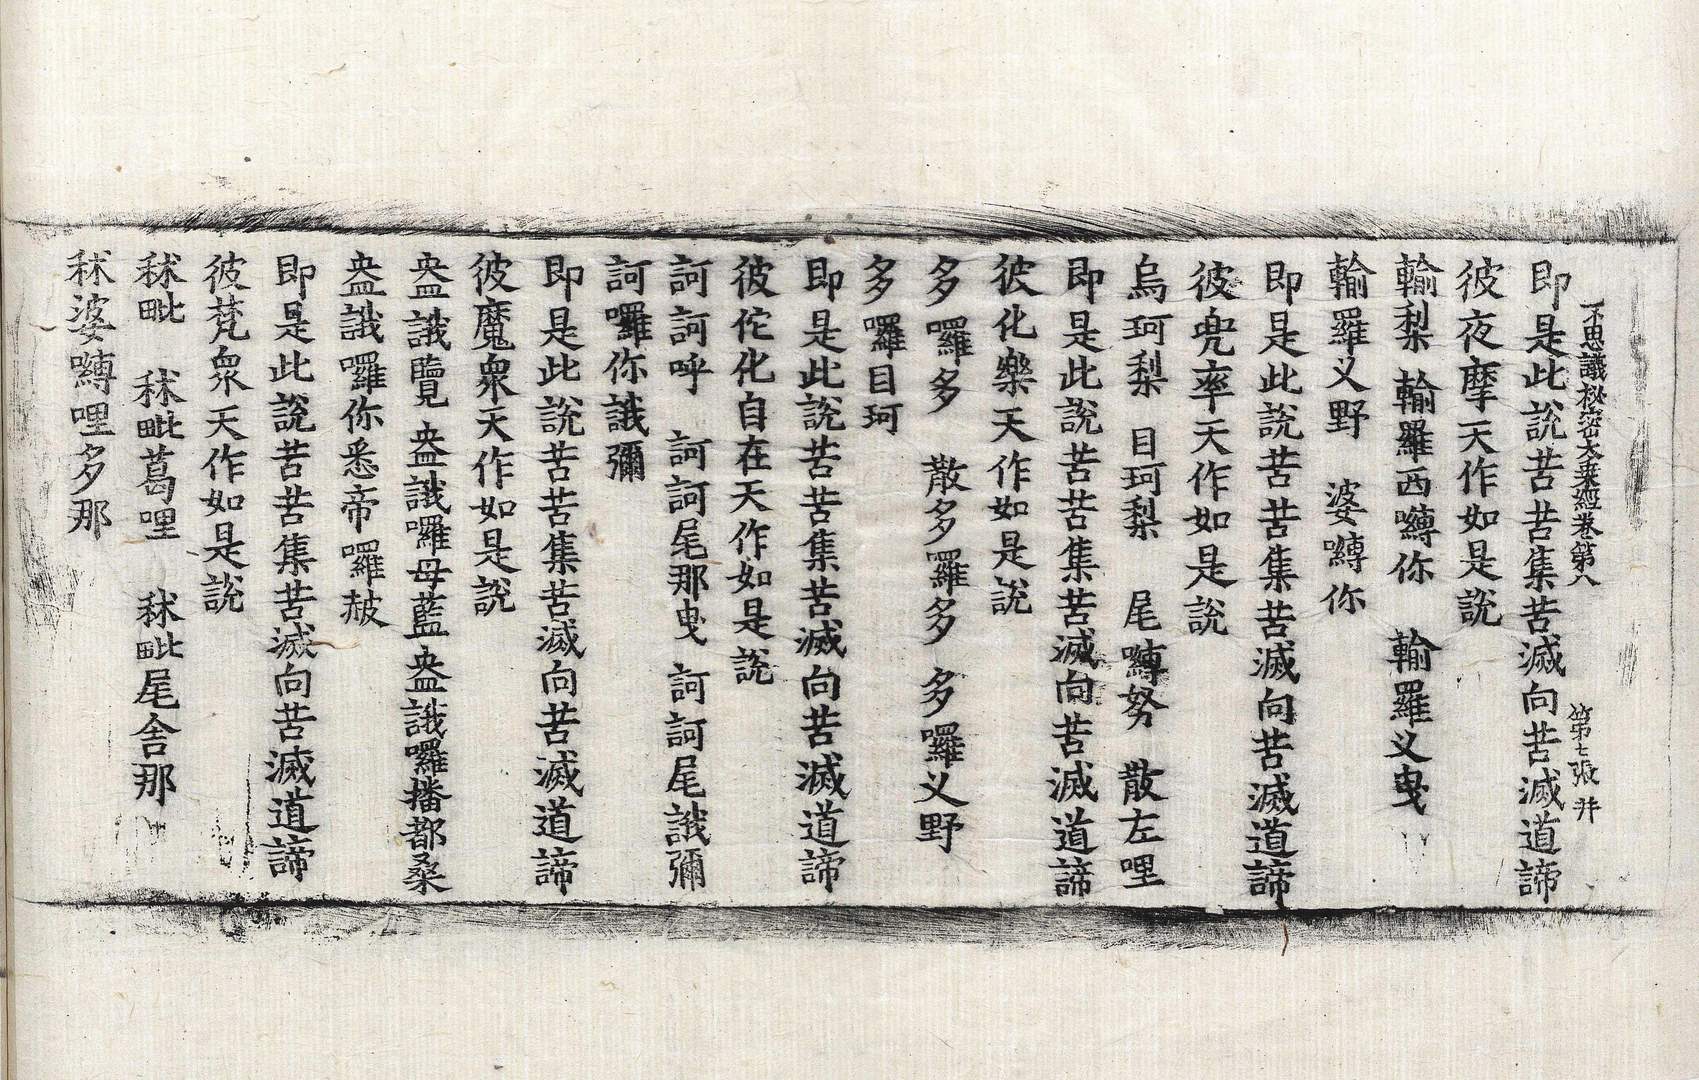 不思議秘密大乗經卷第八 第七張 幷
即是此說苦苦集苦滅向苦滅道諦
彼夜摩天作如是說
輸梨 輸羅西嚩你 輸羅义曳
輸羅义野 婆嚩你
即是此說苦苦集苦滅向苦滅道諦
彼兜率天作如是說
烏珂梨 目珂梨 尾嚩努 散左哩
即是此說苦苦集苦滅向苦滅道諦
彼化樂天作如是說
多囉多 散多囉多 多囉义野
多囉目珂
即是此說苦苦集苦滅向苦滅道諦
彼佗化自在天作如是說
訶訶呼 訶訶尾那曳 訶訶尾誐彌
訶囉你誐彌
即是此說苦苦集苦滅向苦滅道諦
彼魔衆天作如是說
盎誐覽 盎誐囉母藍盎誐囉播都桑
盎誐囉你悉帝囉赦
即是此說苦苦集苦滅向苦滅道諦
彼梵衆天作如是說
秫毗 秫毗葛哩 秫毗尾舍那
秫婆嚩哩多那